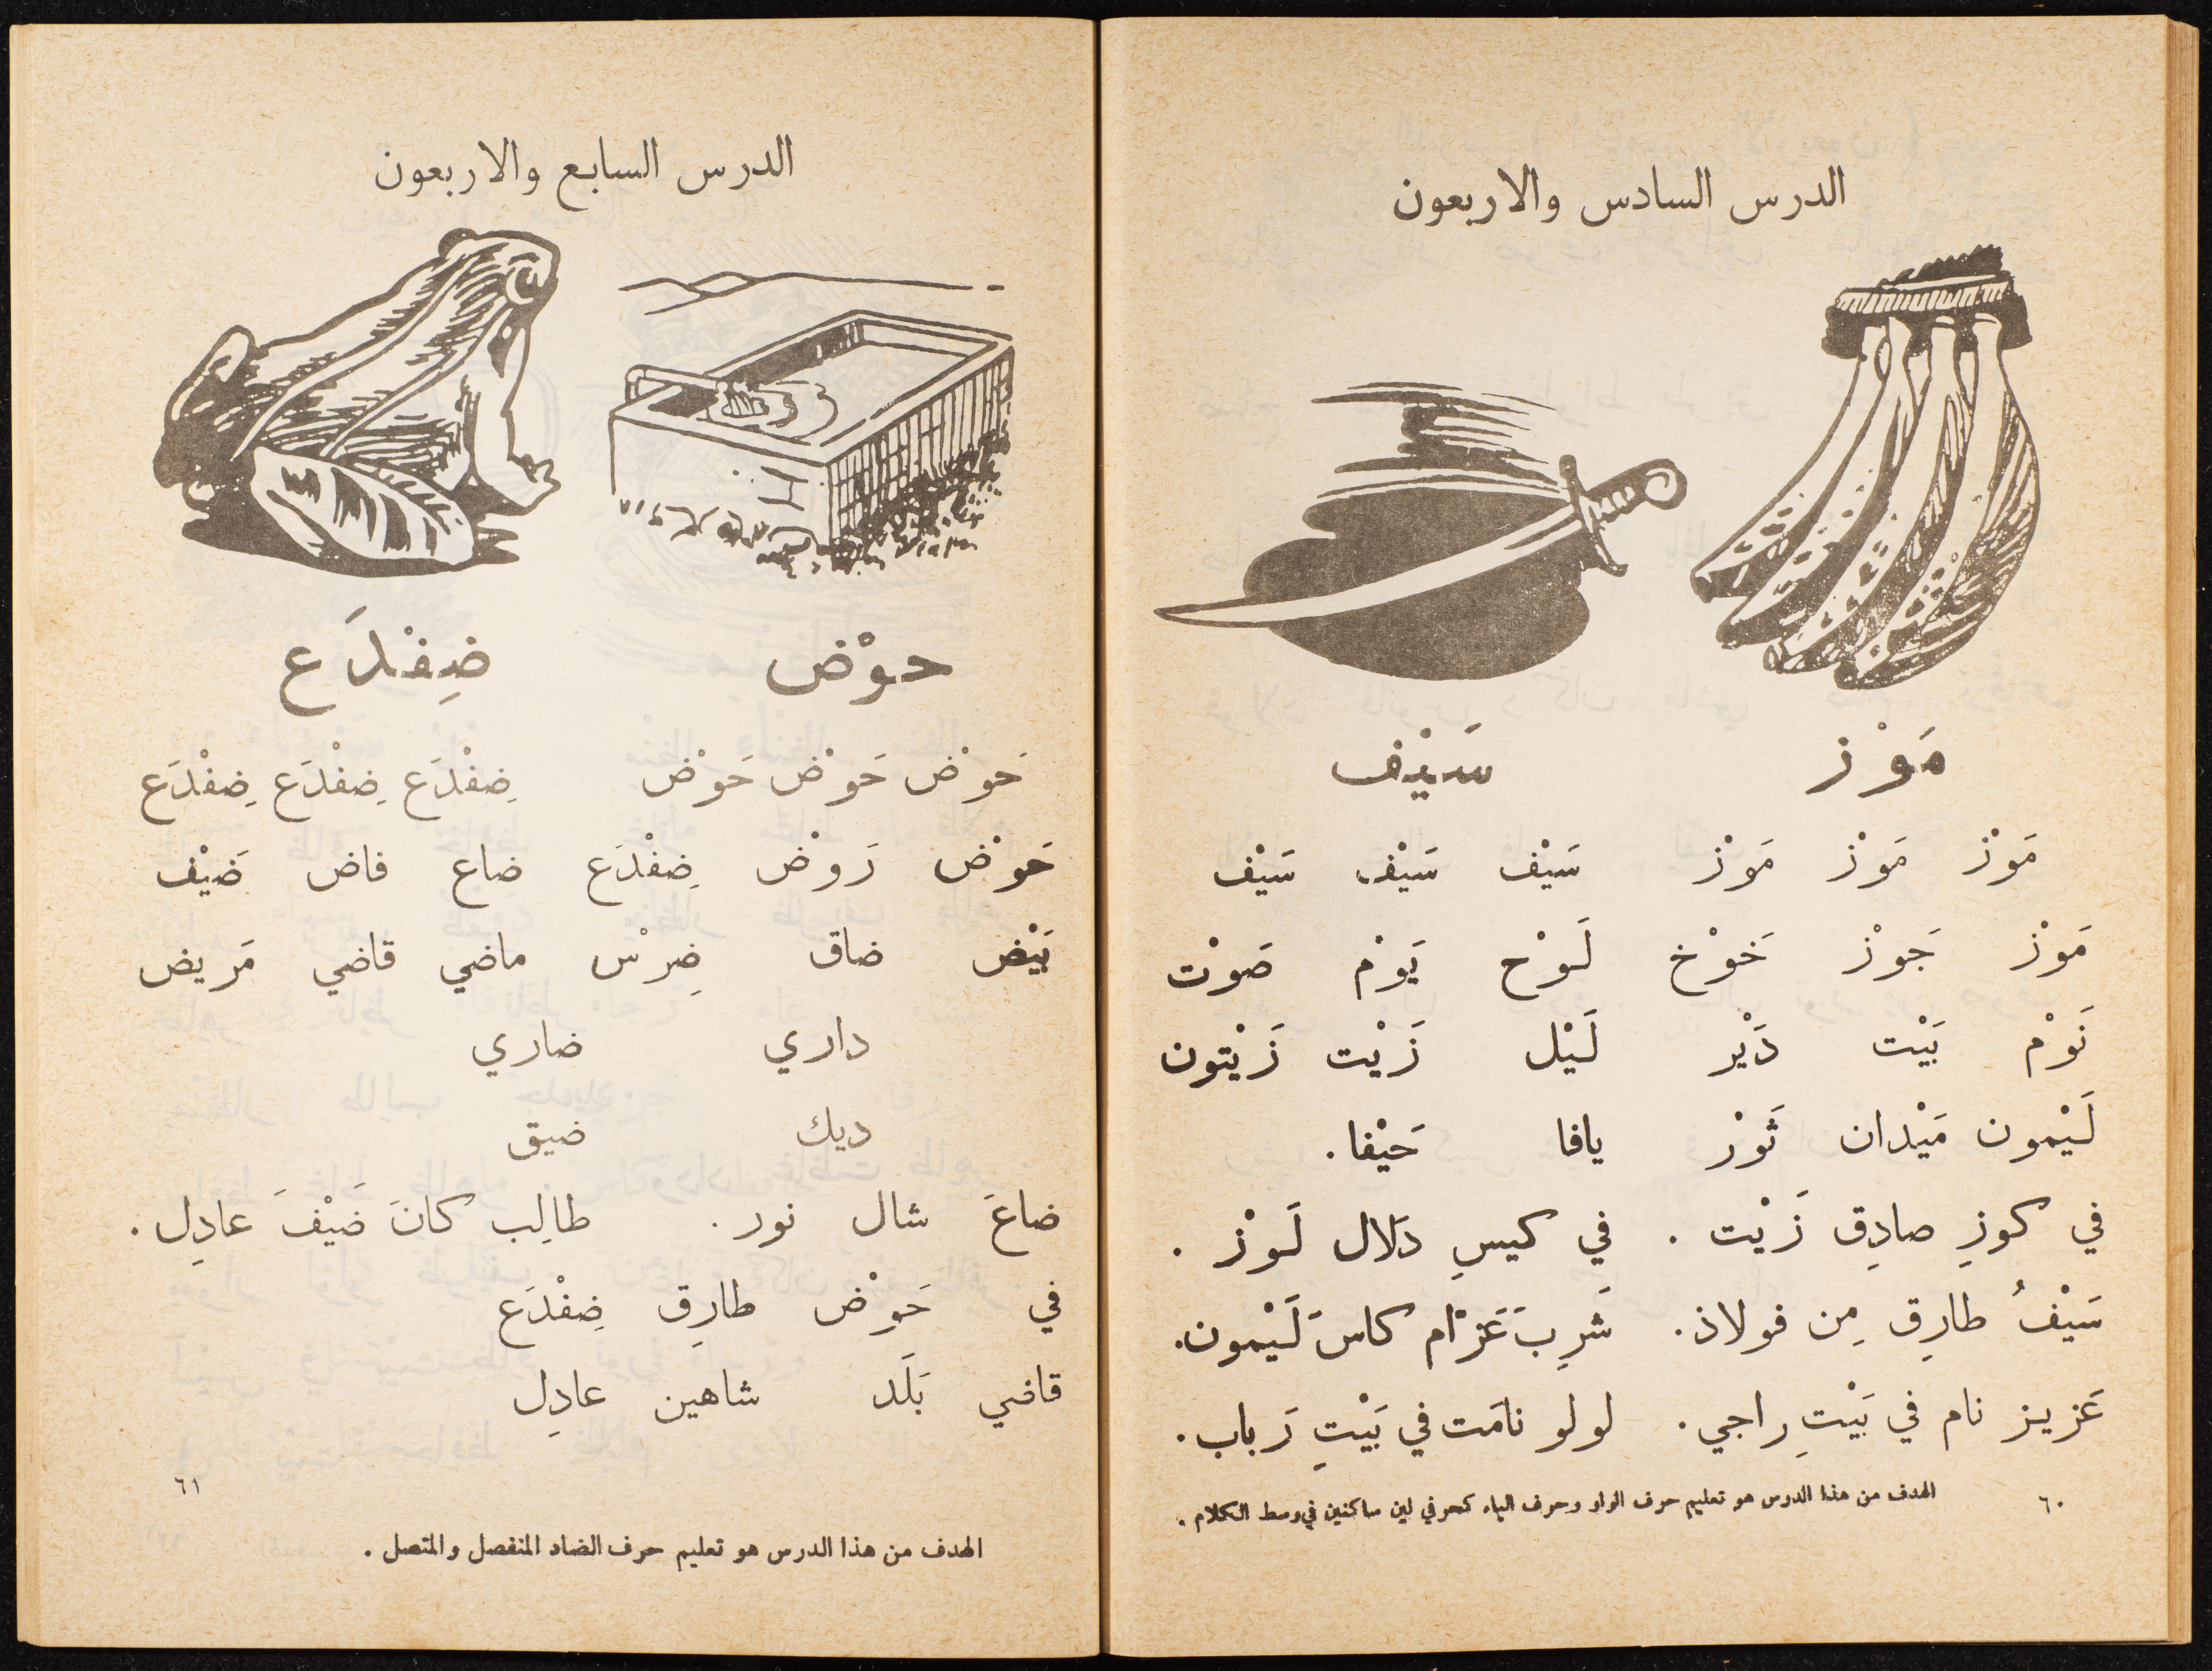 الدرس السادس والاربعون
مَوْز سَيْف
مَوْز مَوْز مَوْز سَيْف سَيْف سَيْف
مَوْز جَوْز خَوْخ لَوْح يَوْم صَوْت
نَوْم بَيْت دَيْر لَيْل زَيْت زَيْتون
لَيْمون مَيْدان ثَوْر يافا حَيْفا .
في كوزِ صادِق زَيْت . في كيسِ دَلال لَوْز .
سَيْفُ طارِق مِن فولاذ . شَرِبَ عَزْام كاسَ لَيْمون .
عَزيز نام في بَيْتِ راجي . لولو نامَت في بَيْتِ رَباب .
الهدف من هذا الدرس هو تعليم حرف الواو وحرف الياء كحرفي لين ساكنين في وسط الكلام .
٦٠
الدرس السابع والاربعون
حوْض ضِفْدَع
حَوْض حَوْض حَوْض ضِفْدَع ضِفْدَع ضِفْدَع
حَوْض رَوْض ضِفْدَع ضاع فاض ضَيْف
بَيْض ضاق ضِرْس ماضي قاضي مَريض
داري ضاري
ديك ضيق
ضاعَ شال نور . طالِب كانَ ضَيْفَ عادِل .
في حَوْضِ طارِق ضِفْدَع
قاضي بَلَد شاهين عادِل
٦١
الهدف من هذا الدرس هو تعليم حرف الضاد المنفصل والمتصل .